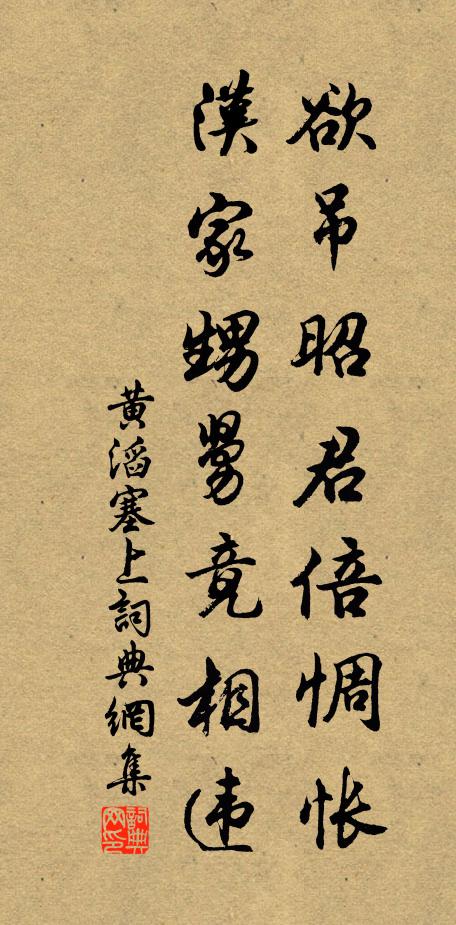 欲吊昭君倍惆怅
漢家甥舅竟相违
黄滔塞上詞典網集
詞典
网印